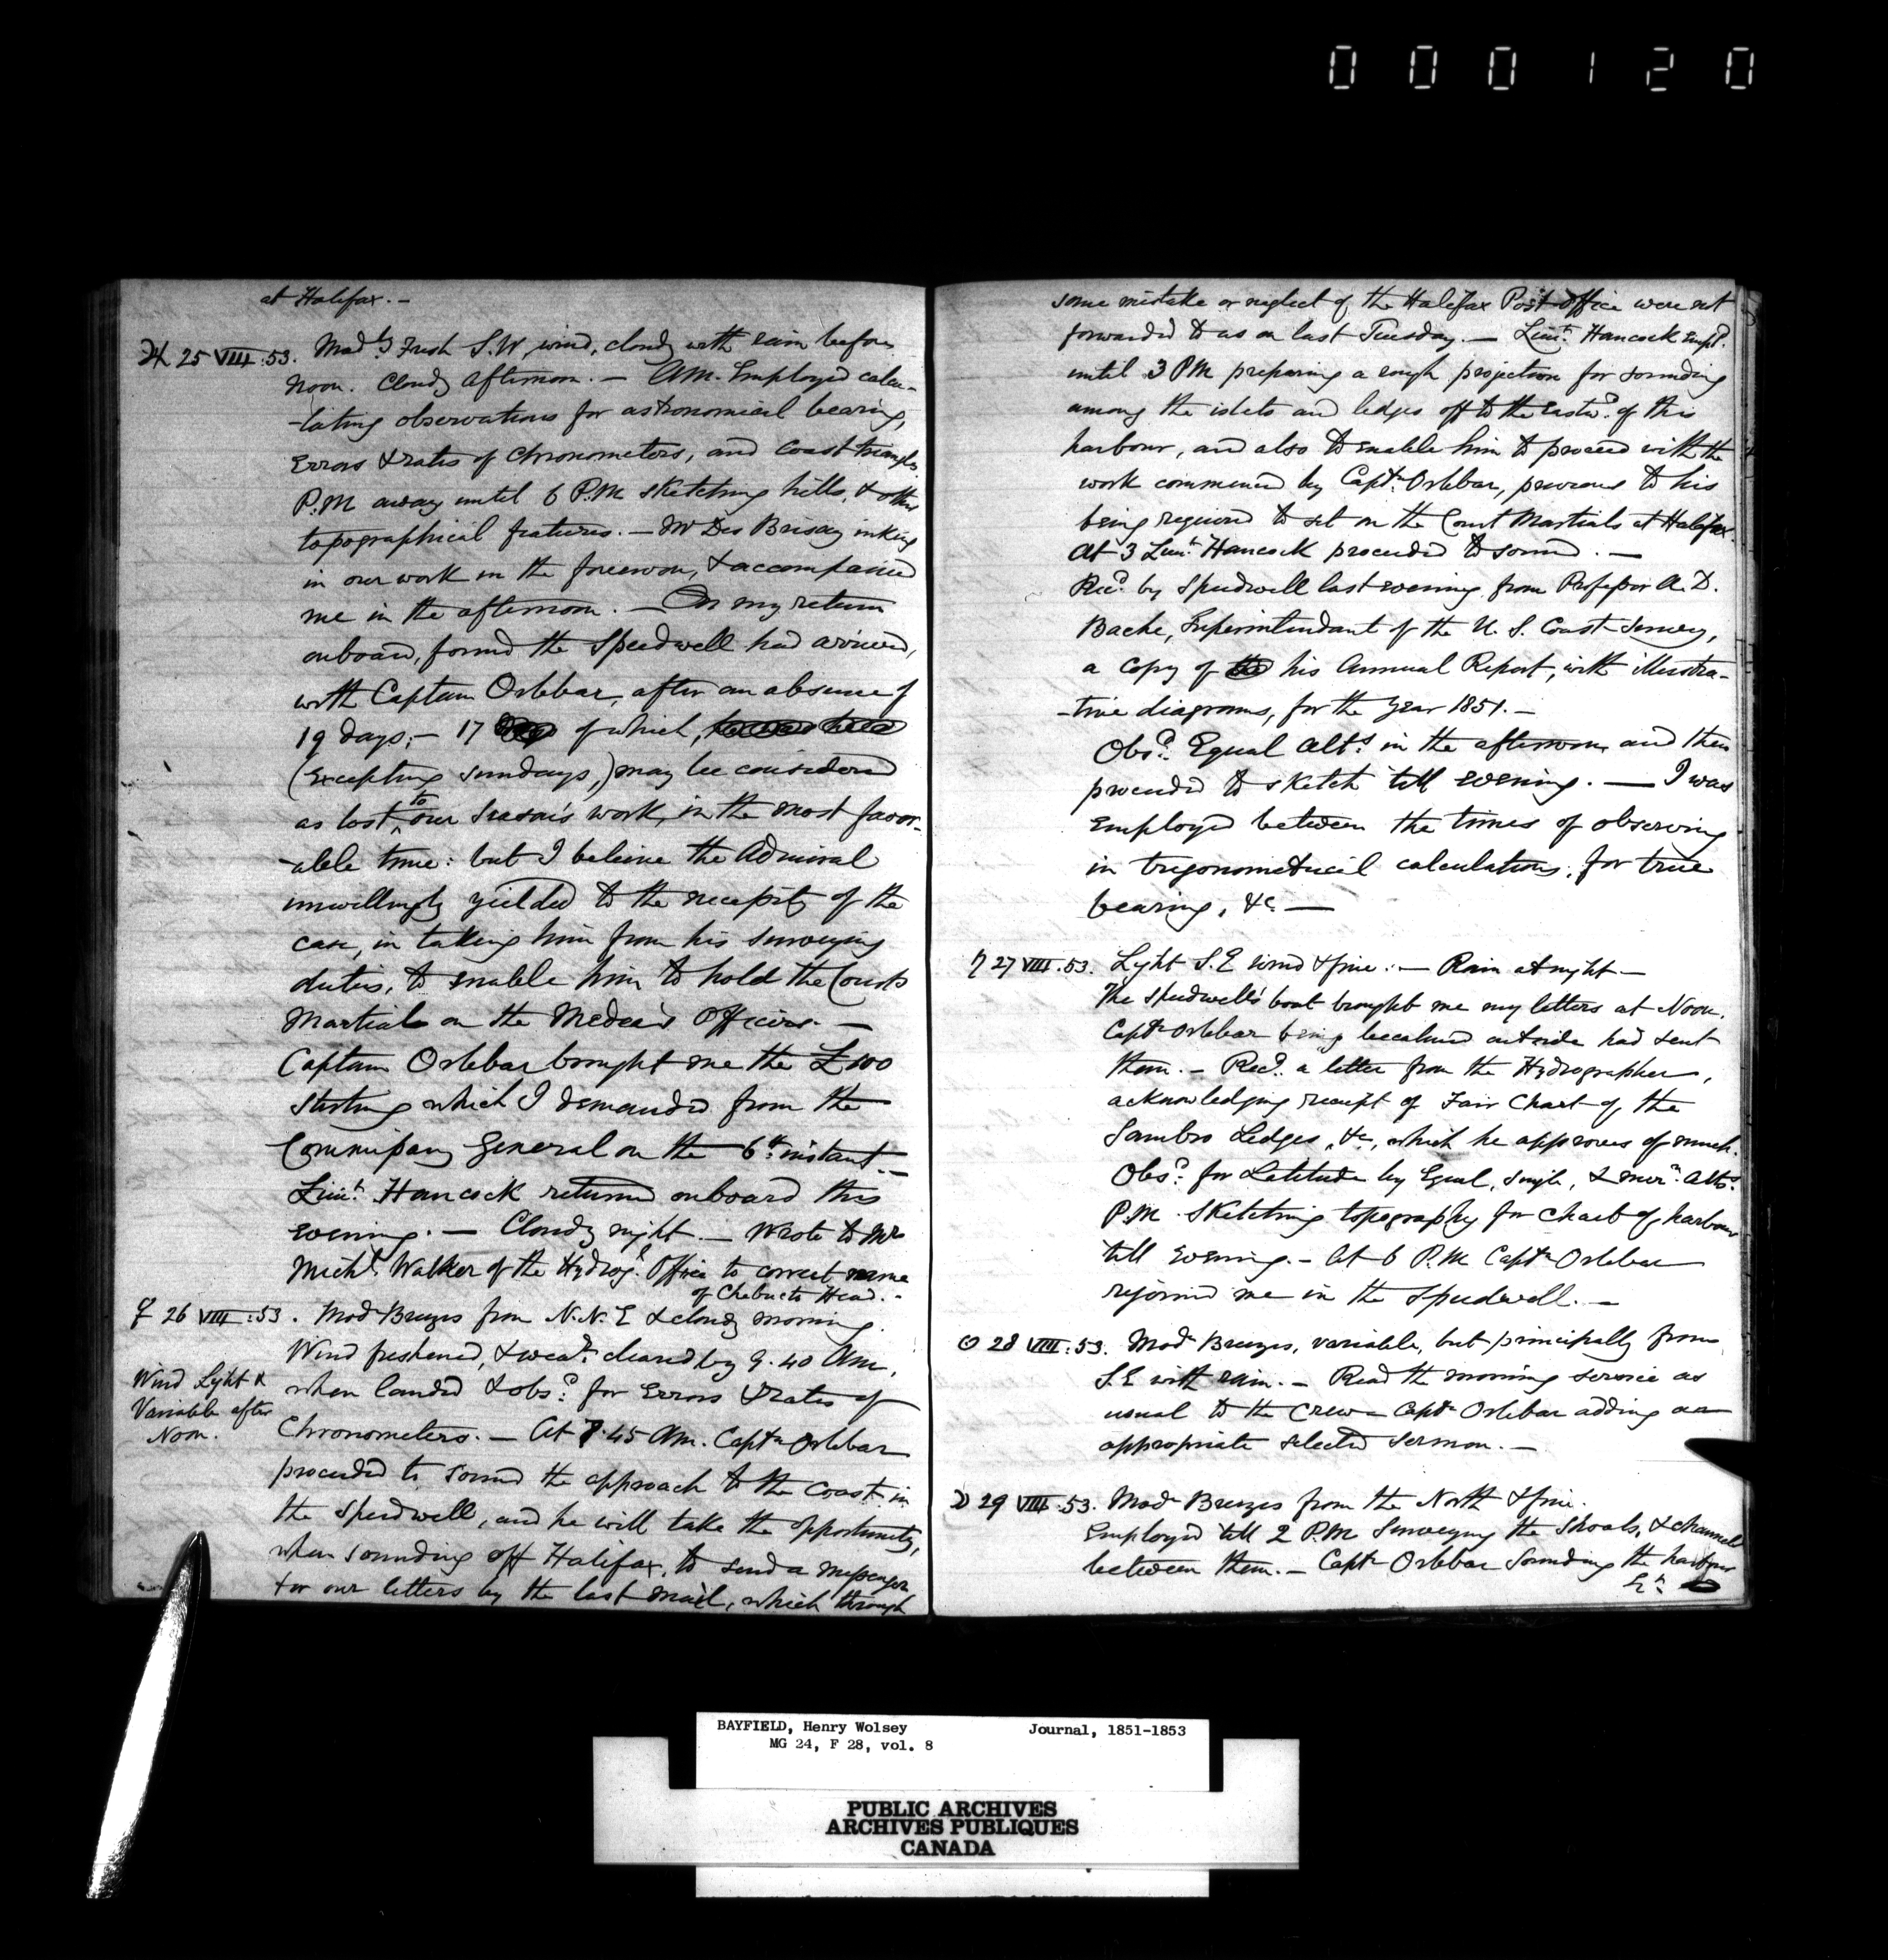 000120
at Halifax. -
♃ 25 VIII:53. Modly Fresh S.W. wind, cloudy with rain before
Noon. Cloudy afternoon. - AM. Employed calcu-
-lating observations for astronomical bearing,
Errors & rates of Chronometers, and coast triangles.
P.M away until 6 P.M sketching hills, & other
topographical features. - Mr Des Brisay inking
in our work in the forenoon, & accompanied
me in the afternoon. - On my return
onboard, found the Speedwell had arrived,
with Captain Orlebar, after an absence of
19 days; - 17 of which,
(Excepting Sundays,) may be considered
as lost to our Season's work, in the most favor-
-able time: but I believe the Admiral
unwillingly yielded to the necessity of the
case, in taking him from his surveying
duties, to enable him to hold the Courts
Martial on the Medea's Officers. -
Captain Orlebar brought me the £100
Sterling which I demanded from the
Commissary General on the 6th instant. -
Lieut. Hancock returned onboard this
evening. - Cloudy night. - Wrote to Mr
Michl. Walker of the Hydrogl. Office to correct name
of Chebucto Head. -
♀ 26 VIII:53. Modr Breezes from N.N.E & cloudy morning.
Wind freshened, & weathr. cleared by 9.40 AM.
Wind Light &
Variable after
Noon.
when landed & obsd. for Errors & rates of
Chronometers. - At 7.45 AM. Captn Orlebar
proceeded to sound the approach to the Coast in
the Speedwell, and he will take the opportunity,
when sounding off Halifax, to send a messenger
for our letters by the last mail, which through
some mistake or neglect of the Halifax Post office were not
forwarded to us on last Tuesday. - Lieut. Hancock Empd.
until 3 PM preparing a rough projection for sounding
among the islets and ledges off to the Eastwd. of this
harbour, and also to enable him to proceed with the
work commenced by Captn. Orlebar, previous to his
being required to sit on the Court Martials at Halifax.
At 3 Lieut. Hancock proceeded to sound. -
Recd. by Speedwell last evening from Professor A. D.
Bache, Superintendant of the U. S. Coast Survey,
a copy of his Annual Report, with illustra-
-tive diagrams, for the year 1851. -
Obsd. Equal Alts. in the afternoon, and then
proceeded to sketch till evening. - I was
Employed between the times of observing
in trigonometrical calculations, for true
bearing, &c. -
♄ 27 VIII.53. Light S.E wind & fine. - Rain at night -
The Speedwell's boat brought me my letters at Noon.
Captn Orlebar being becalmed outside had sent
them. - Recd. a letter from the Hydrographer,
acknowledging receipt of Fair Chart of the
Sambro Ledges, &c, which he approves of much.
Obsd. for Latitude by Equal, single, & mern. Alts.
P.M. Sketching topography for Chart of harbour
till evening. - At 6 P.M Captn Orlebar
rejoined me in the Speedwell. -
☉ 28 VIII:53. Modr Breezes, variable, but principally from
S.E with rain. - Read the morning service as
usual to the Crew - Captn Orlebar adding an
appropriate selected Sermon. -
☽ 29 VIII:53. Modr Breezes from the North & fine.
Employed till 2 P.M Surveying the Shoals, & channels
between them. - Captn Orlebar Sounding the harbour
BAYFIELD, Henry Wolsey Journal, 1851-1853
MG 24, F 28, vol. 8
PUBLIC ARCHIVES
ARCHIVES PUBLIQUES
CANADA